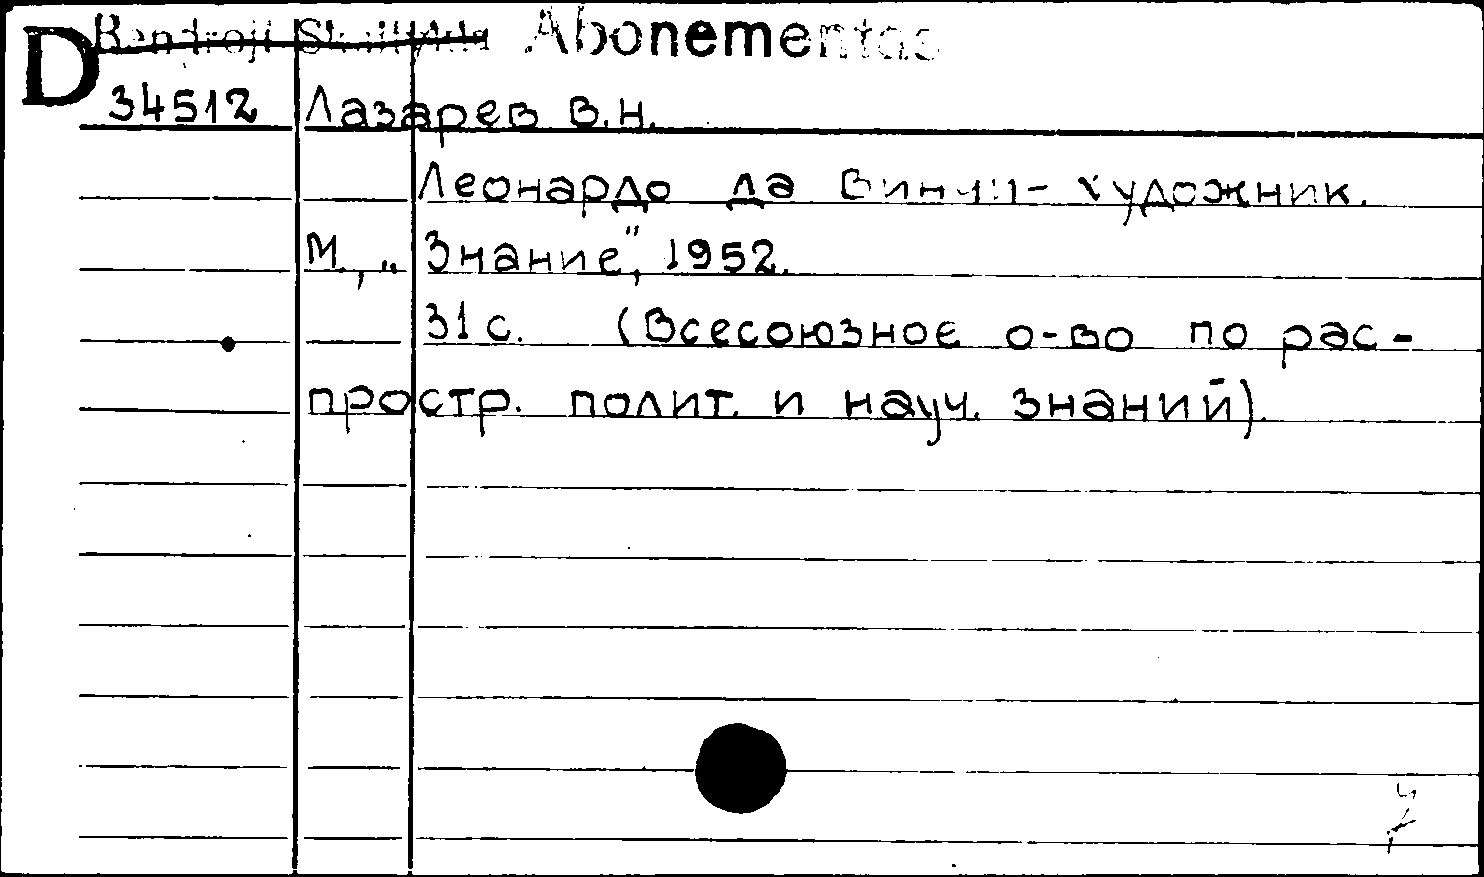 D Bendroji Skaitykla Abonementas
34512 Лазарев В.Н.
Леонардо да Винчи - художник.
М., „Знание“, 1952.
31 с. (Всесоюзное о-во по рас-
простр. полит. и науч. знаний).